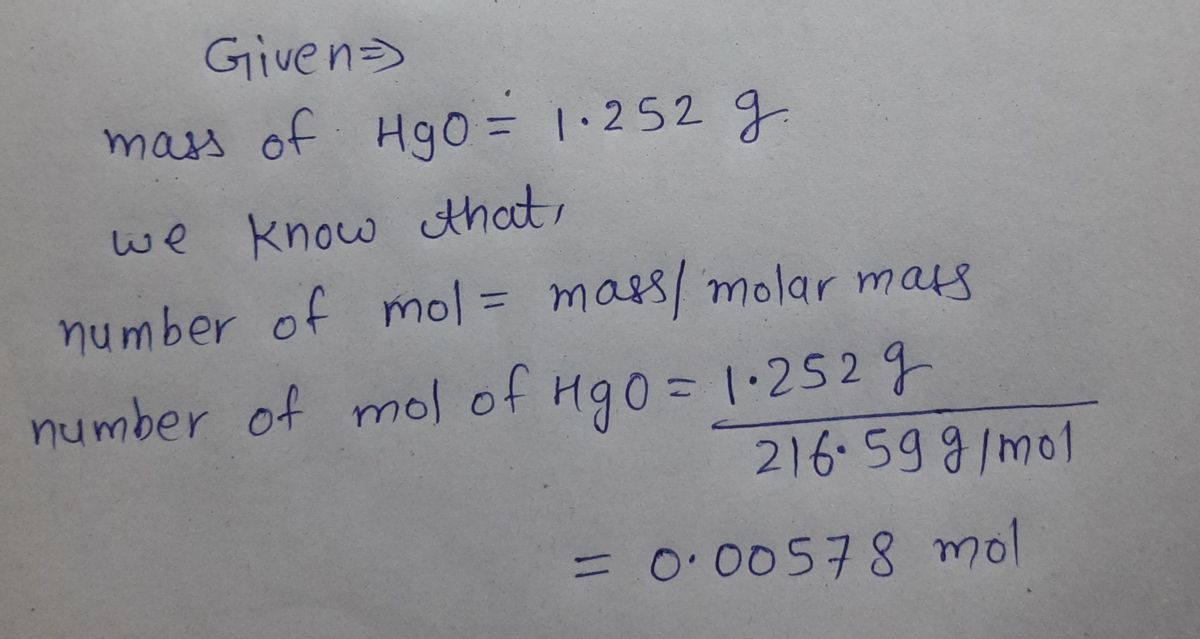 Given⇒
mass of HgO = 1.252 g.
we know that,
number of mol = mass/molar mass
number of mol of HgO = 1.252 g
216.59 g/mol
= 0.00578 mol